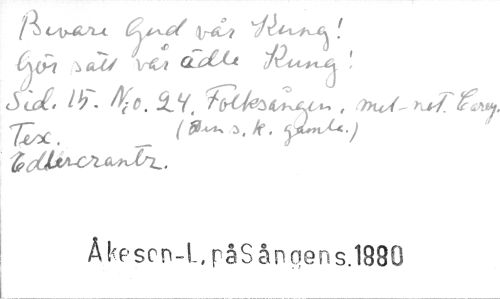 Bevare Gud vår Kung!
Gör säll vår ädle Kung!
Sid. 15. N:o. 24. Folksången. mel-not. Carey.
Tex. (Den s.k. gamla.)
Edlercrantz.
Åkeson-L. påSångens.1880